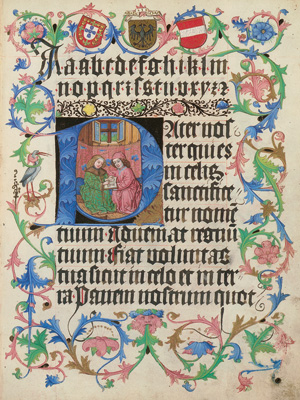 Aaabcdefghiklm
Pater nos
ter qui es
in celis
sanctifice
tur nomē
tuum Adueniat regnū
tuum Fiat voluntas
tua sicut in celo et in ter
ra Panem nostrum quot